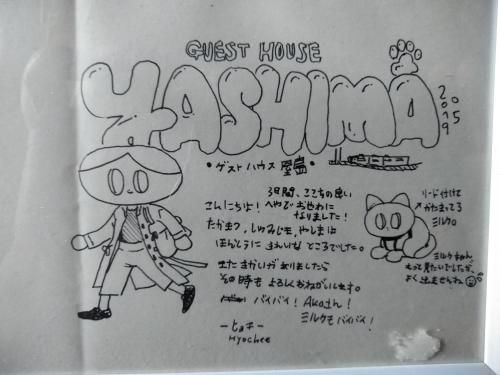 GUEST HOUSE
YASHIMA
2019
5
20
・ゲストハウス 屋島・
3日間、ここちの良い
こんにちは! へやで おせわに
なりました!
たかまつ、しょうどしま、やしまは
ほんとうに きれいな ところでした。
またきかいが ありましたら
その時も よろしくおねがいします。
バイバイ! Akaさん!
ミルクもバイバイ!
ー ヒョチ ー
Hyochee
リード付けて
かたまってる
ミルク。
ミルクちゃん、